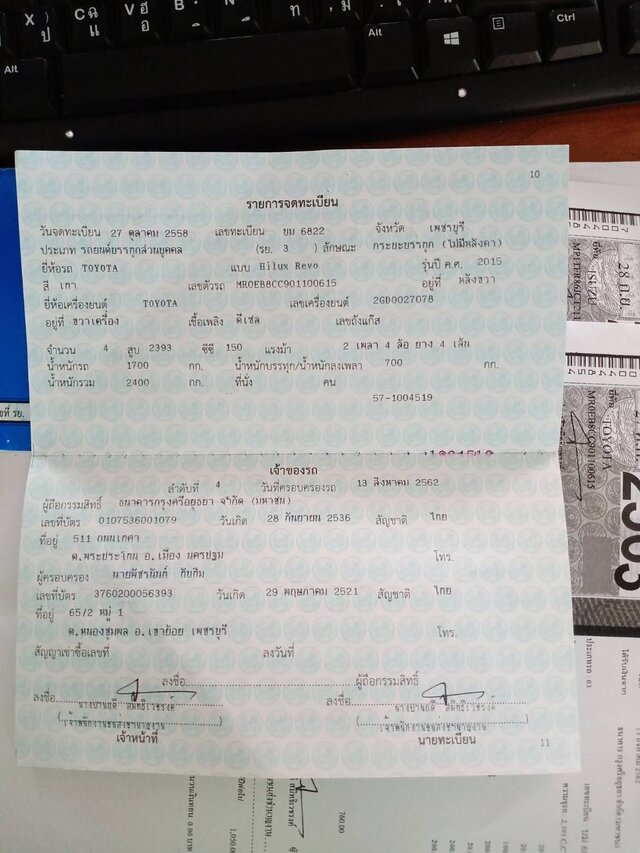 10
รายการจดทะเบียน
วันจดทะเบียน 27 ตุลาคม 2558 เลขทะเบียน ยม 6822 จังหวัด เพชรบุรี
ประเภท รถยนต์บรรทุกส่วนบุคคล (รย. 3 ) ลักษณะ กระบะบรรทุก (ไม่มีหลังคา)
ยี่ห้อรถ TOYOTA แบบ Hilux Revo รุ่นปี ค.ศ. 2015
สี เทา เลขตัวรถ MR0EB8CC901100615 อยู่ที่ หลังขวา
ยี่ห้อเครื่องยนต์ TOYOTA เลขเครื่องยนต์ 2GD0027078
อยู่ที่ ขวาเครื่อง เชื้อเพลิง ดีเซล เลขถังแก๊ส
จำนวน 4 สูบ 2393 ซีซี 150 แรงม้า 2 เพลา 4 ล้อ ยาง 4 เส้น
น้ำหนักรถ 1700 กก. น้ำหนักบรรทุก/น้ำหนักลงเพลา 700 กก.
น้ำหนักรวม 2400 กก. ที่นั่ง คน
57-1004519
เจ้าของรถ
ลำดับที่ 4 วันที่ครอบครองรถ 13 สิงหาคม 2562
ผู้ถือกรรมสิทธิ์ ธนาคารกรุงศรีอยุธยา จำกัด (มหาชน)
เลขที่บัตร 0107536001079 วันเกิด 28 กันยายน 2536 สัญชาติ ไทย
ที่อยู่ 511 ถนนเทศา
ต.พระประโทน อ.เมือง นครปฐม โทร.
ผู้ครอบครอง
เลขที่บัตร 3760200056393 วันเกิด 29 พฤษภาคม 2521 สัญชาติ ไทย
ที่อยู่ 65/2 หมู่ 1
ต.หนองชุมพล อ.เขาย้อย เพชรบุรี โทร.
สัญญาเช่าซื้อเลขที่ ลงวันที่
ลงชื่อ ผู้ถือกรรมสิทธิ์
ลงชื่อ
เจ้าหน้าที่ นายทะเบียน
11
Alt
Alt
Ctrl
ISUZU
28 ก.ย.
TOYOTA
MR0EB8CC901100615
2565
760.00
1,050.00